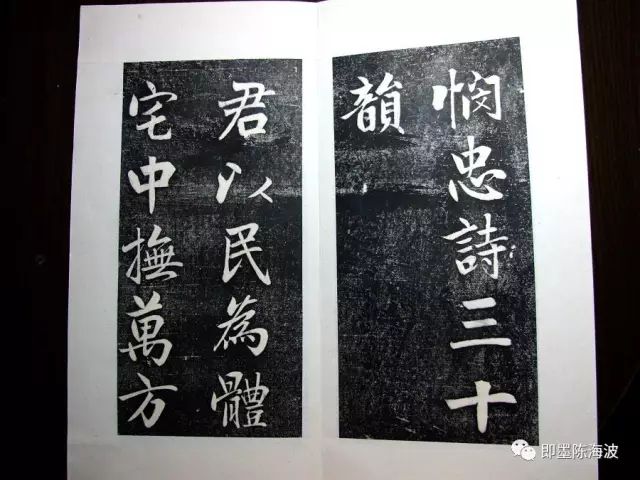 憫忠詩三十
韻
君以民為體
宅中撫萬方
即墨陈海波